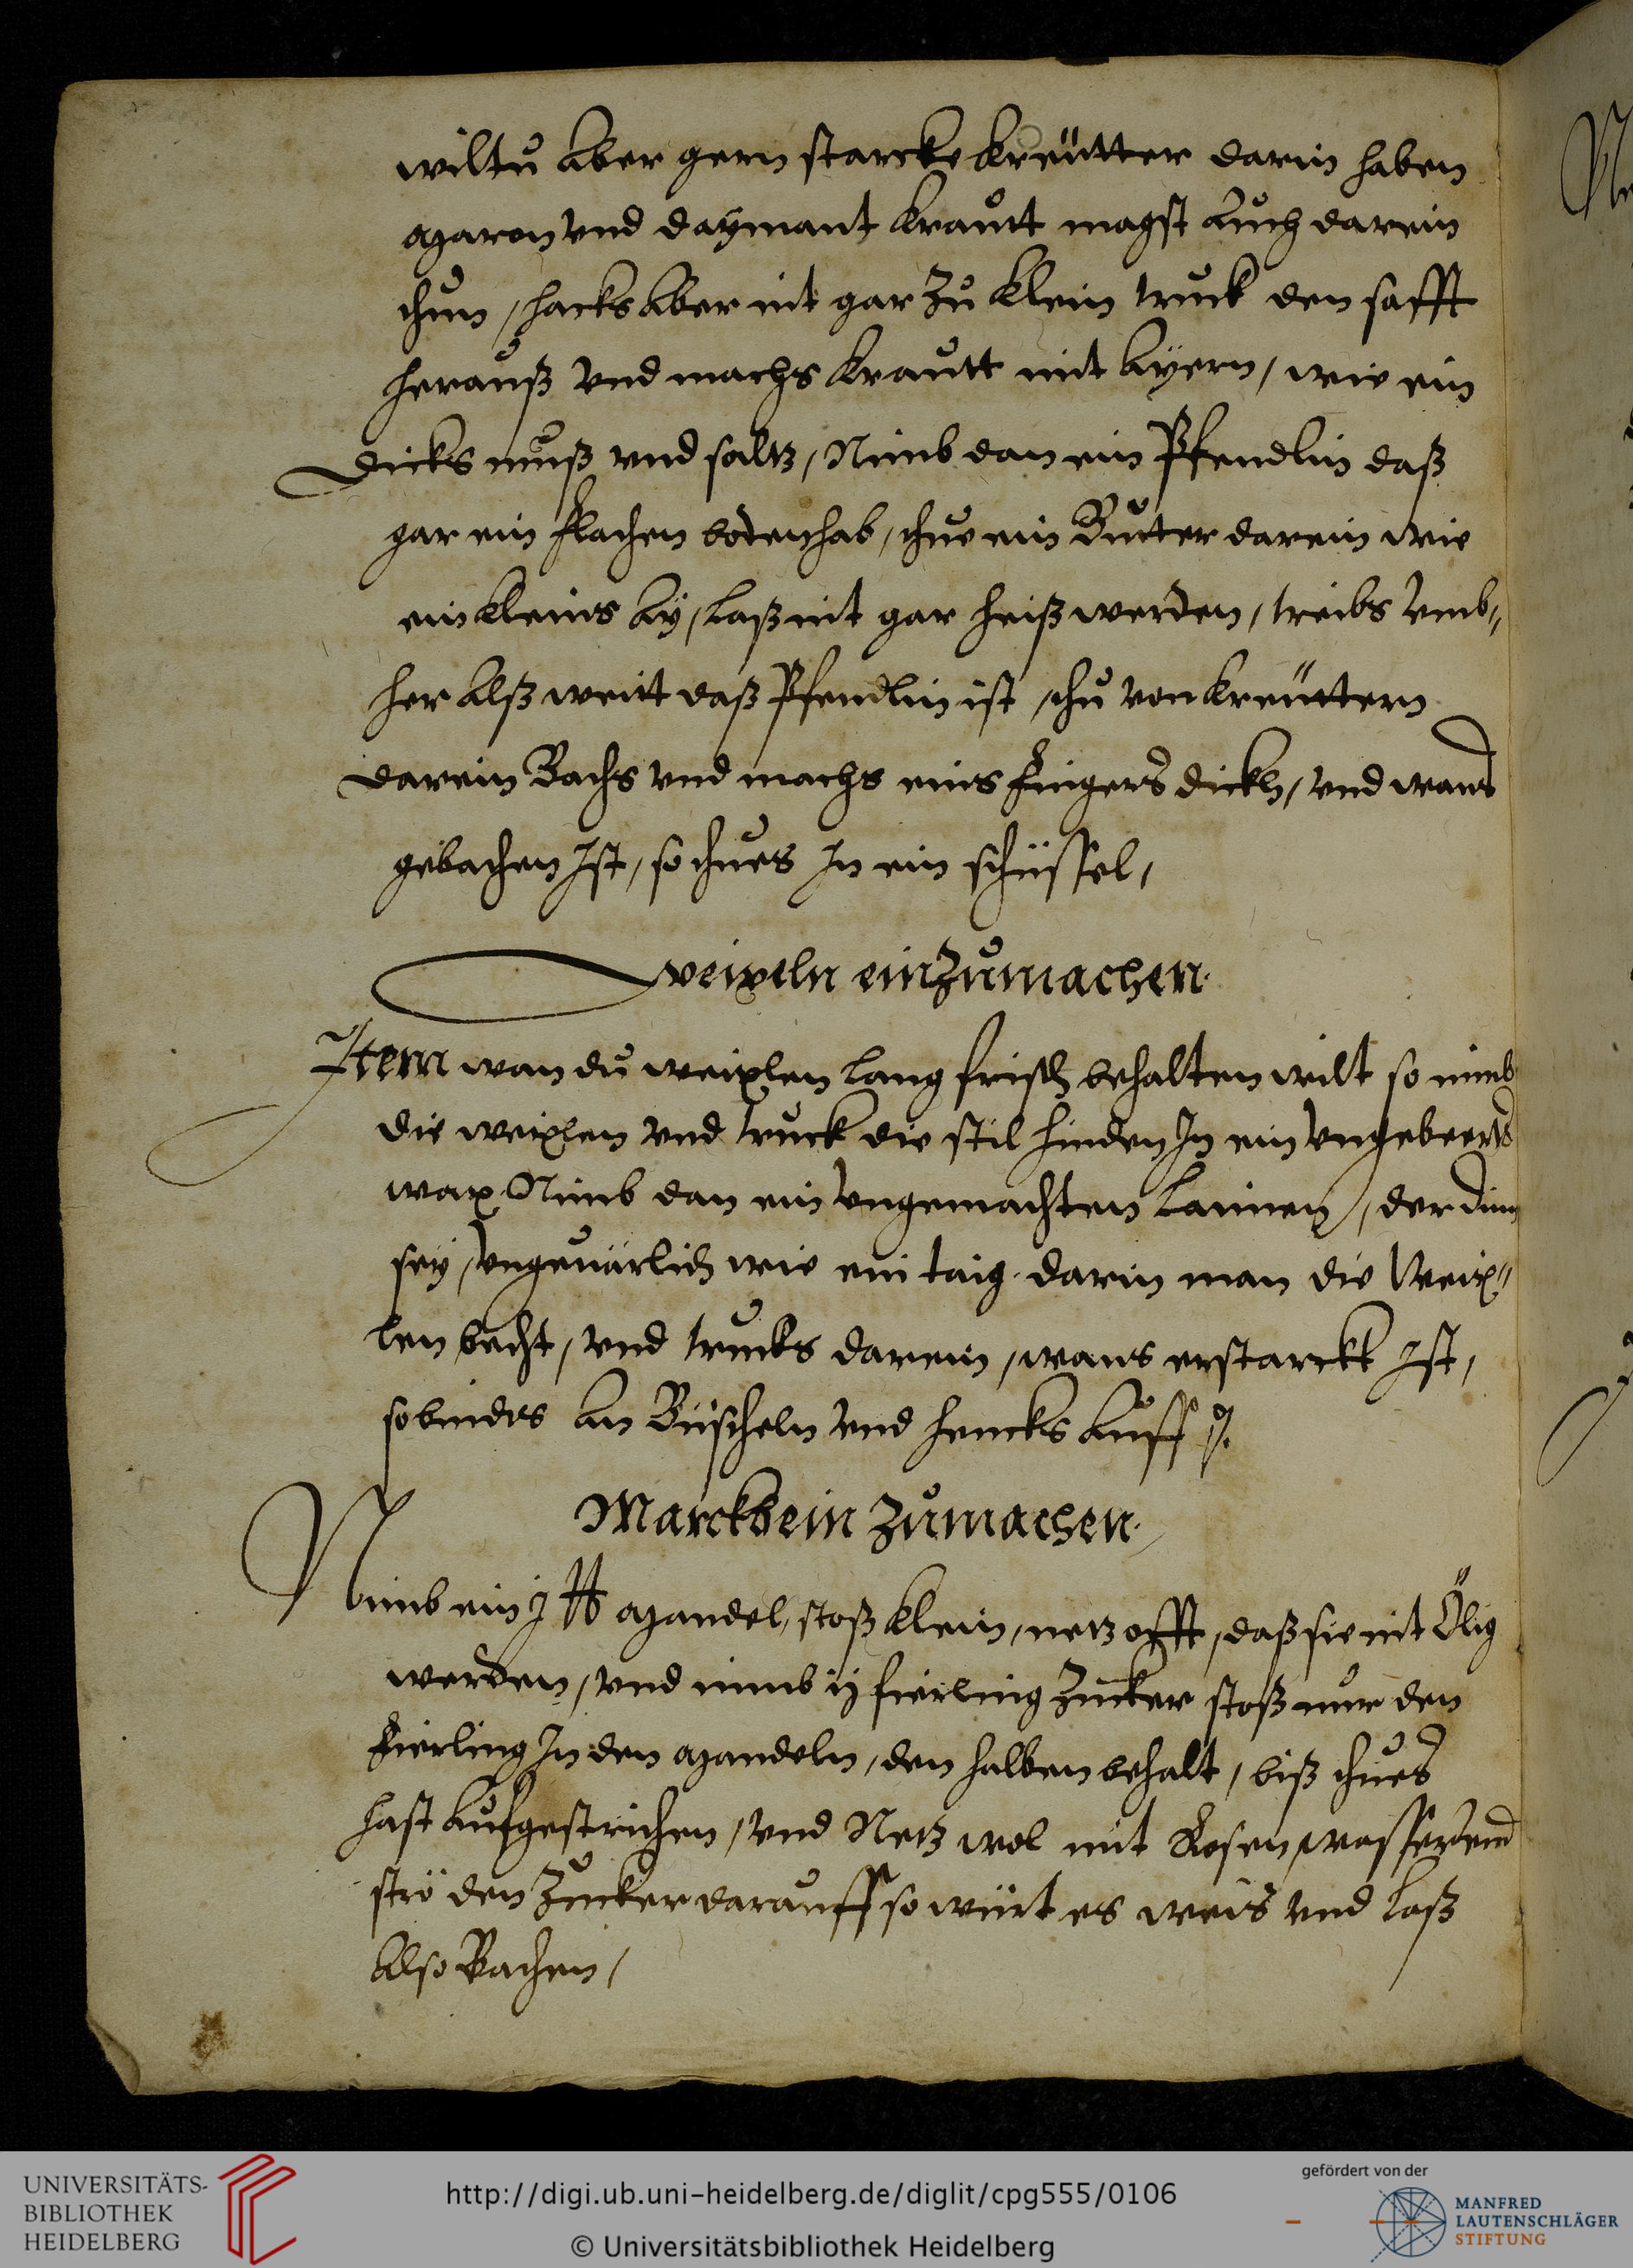 wiltu aber gern starcke kreütter darin haben
maron vnd daÿmant krautt magst auch darein
thun, hacks aber nit gar zu klein truck den safft
herauß vnd machs krautt mit aÿern, wie ein
dicks muß vnd saltz, Nimb dan ein Pfendlin daß
gar ein flachen boden hab, thue ein Butter darein wie
ein kleins aÿ, laß nit gar heiß werden, treibs vmb„
her alß weitt daß Pfendlin ist, thu von kreüttern
darein Bachs vnd machs eins fingers dickh, vnd wans
gebachen Ist, so thues In ein schüssel,
Weixeln einzumachen.
Item wan du weixlen lang frisch behalten wilt so nimb
die weixlen vnd truck die stil hinden In ein vngebeerts
wax Nimb dan ein vngemachten Laimen, der dinn
seÿ, vngeuärlich wie ein taig darin man die Weix„
len becht, vnd trucks darein, wans erstarckt Ist,
so binds an Büscheln vnd hencks auff
Marckbein zumachen.
Nimb ein j ℔ mandel, stoß klein, netz offt, daß sie nit Ölig
werden, vnd nimb ij fierling Zucker stoß nur den
fierling In den mandeln, den halben behalt, biß thues
hast aufgestrichen, vnd Netz wol mit Rosen wasser vnd
strö den Zucker darauff so würt es weis vnd laß
also Bachen,
UNIVERSITÄTS-
BIBLIOTHEK
HEIDELBERG
http://digi.ub.uni-heidelberg.de/diglit/cpg555/0106
© Universitätsbibliothek Heidelberg
gefördert von der
MANFRED
LAUTENSCHLÄGER
STIFTUNG